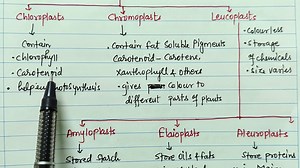 Chloroplasts Chromoplasts Leucoplasts
Contain
• chlorophyll
• Carotenoid
• help in photosynthesis
• Contain fat Soluble Pigments
Carotene - Carotene,
Xanthophyll & others
• gives colour to
different parts of plants
• Colourless
• storage
of chemicals
• Size varies
Amyloplasts Elaioplasts Aleuroplasts
Stored Starch Store Oils & fats Store proteins